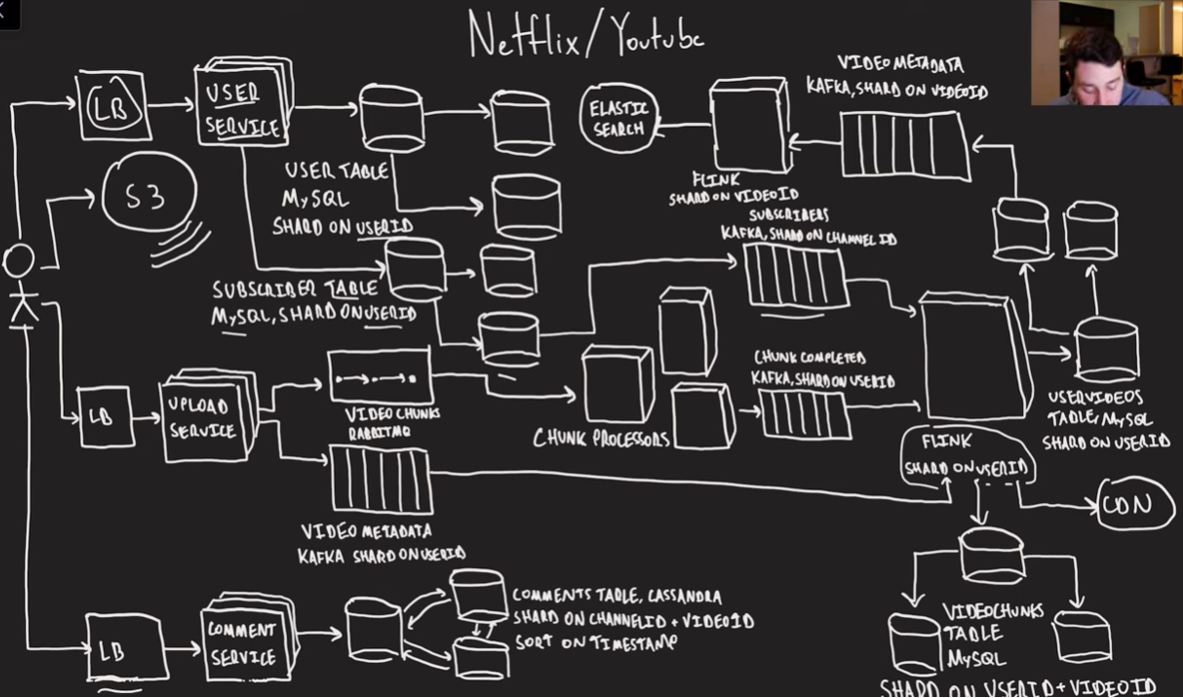 Netflix/Youtube
LB
USER
SERVICE
USER TABLE
MySQL
SHARD ON USERID
S3
SUBSCRIBER TABLE
MySQL, SHARD ON USERID
ELASTIC
SEARCH
FLINK
SHARD ON VIDEOID
VIDEO METADATA
KAFKA, SHARD ON VIDEOID
SUBSCRIBERS
KAFKA, SHARD ON CHANNEL ID
LB
UPLOAD
SERVICE
VIDEO CHUNKS
RABBITMQ
CHUNK PROCESSORS
CHUNK COMPLETED
KAFKA, SHARD ON USERID
FLINK
SHARD ON USERID
USERVIDEOS
TABLE, MySQL
SHARD ON USERID
CDN
VIDEO METADATA
KAFKA SHARD ON USERID
LB
COMMENT
SERVICE
COMMENTS TABLE, CASSANDRA
SHARD ON CHANNELID + VIDEOID
SORT ON TIMESTAMP
VIDEOCHUNKS
TABLE
MySQL
SHARD ON USERID + VIDEOID